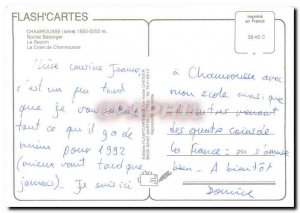 FLASH'CARTES
Imprimé
en France
CHAMROUSSE (Isère) 1650-2250 m.
Roche Béranger
Le Recoin
La Croix de Chamrousse
3845 C
Chère cousine Jeanne,
c'est un peu tard
que je vous souhaite
tout ce qu'il y a de
mieux pour 1992
(mieux vaut tard que
jamais). Je suis ici
à Chamrousse avec
mon école ainsi que
d'autres venant
des quatre coins de
la France : on s'amuse
bien. A bientôt